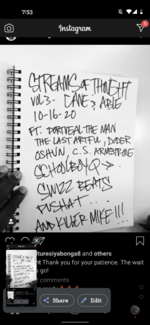 7:53
Instagram
STREAMS OF THOUGHT
VOL 3 - CANE & ABLE
10-16-20
FT. PORTUGAL THE MAN
THE LAST ARTFUL, DODGR
OSHUN, C.S. ARMSTRONG
SCHOOLBOY Q →
SWIZZ BEATS
PUSHA T...
AND KILLER MIKE!!!
turesiyabonga8 and others
Thank you for your patience. The wait
go!
comments
Share
Edit